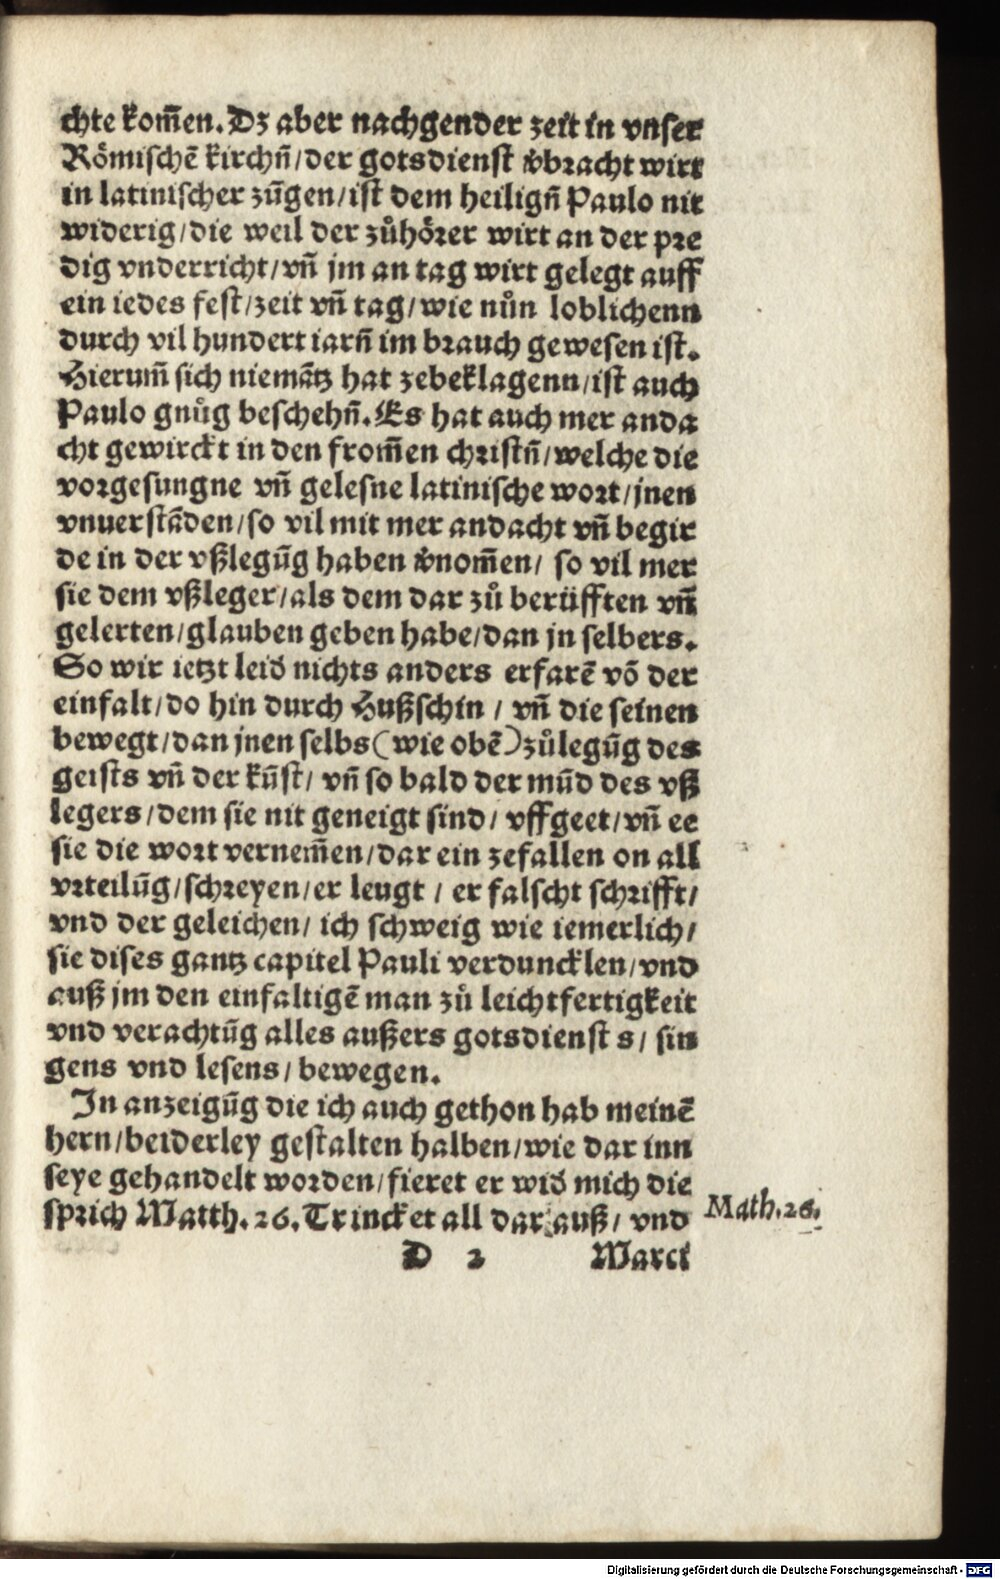 chte kom̃en. Dz aber nachgender zeit in vnser
Römischẽ kirchñ/der gotsdienst v̾bracht wirt
in latinischer zũgen/ist dem heiligñ Paulo nit
widerig/die weil der zůhörer wirt an der pre
dig vnderricht/vñ jm an tag wirt gelegt auff
ein iedes fest/zeit vñ tag/wie nůn loblichenn
durch vil hundert iarñ im brauch gewesen ist.
Hierum̃ sich niemãtz hat zebeklagenn/ist auch
Paulo gnůg beschehñ. Es hat auch mer anda
cht gewirckt in den from̃en christñ/welche die
vorgesungne vñ gelesne latinische wort/jnen
vnuerstãden/so vil mit mer andacht vñ begir
de in der vßlegũg haben v̾nom̃en/ so vil mer
sie dem vßleger/als dem dar zů berüfften vñ
gelerten/glauben geben habe/dan jn selbers.
So wir ietzt leid̾ nichts anders erfarẽ võ der
einfalt/do hin durch Hußschin / vñ die seinen
bewegt/dan jnen selbs(wie obẽ)zůlegũg des
geists vñ der kũst/ vñ so bald der mũd des vß
legers/dem sie nit geneigt sind/ vffgeet/vñ ee
sie die wort vernem̃en/dar ein zefallen on all
vrteilũg/schreyen/er leugt / er falscht schrifft/
vnd der geleichen/ ich schweig wie iemerlich/
sie dises gantz capitel Pauli verduncklen/vnd
auß jm den einfaltigẽ man zů leichtfertigkeit
vnd verachtũg alles außers gotsdiensts/ sin
gens vnd lesens/bewegen.
In anzeigũg die ich auch gethon hab meinẽ
hern/beiderley gestalten halben/wie dar inn
seye gehandelt worden/fieret er wid̾ mich die
sprich Matth. 26. Trincket all dar auß/ vnd
Math. 26.
D 2 Marci
Digitalisierung gefördert durch die Deutsche Forschungsgemeinschaft - DFG